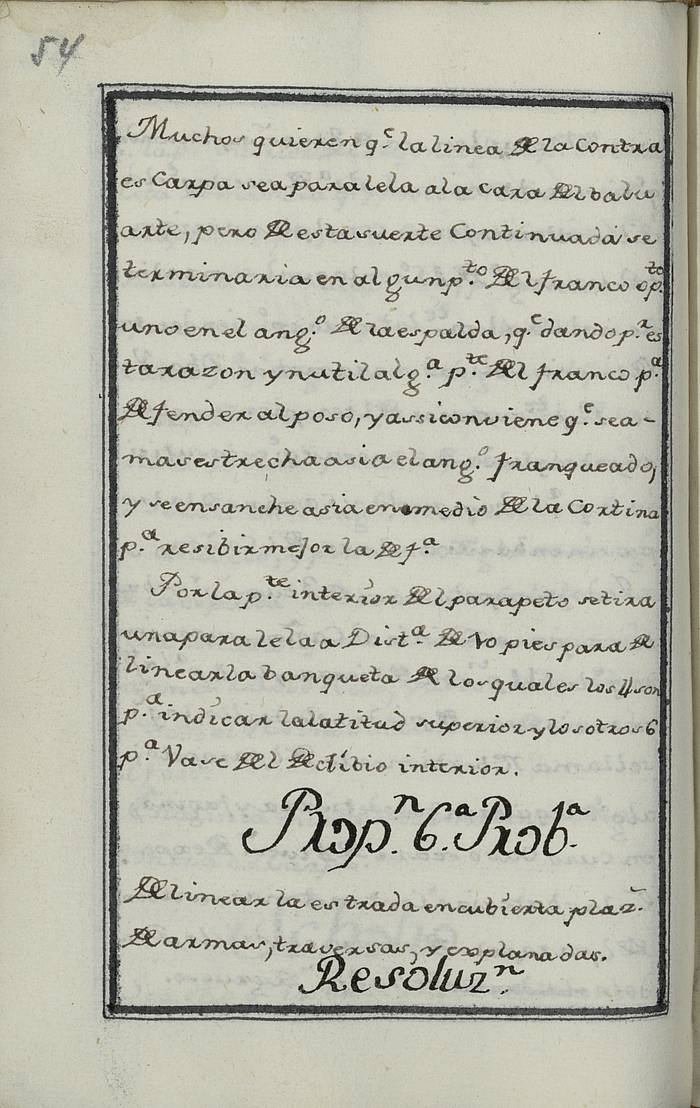 54
Muchos quieren q.e la linea de la Contra
es Carpa sea paralela a la cara del balu
arte, pero de esta suerte Continuada se
terminaria en algun p.to del franco op.to
uno en el ang.o de la espalda, q.e dando p.r es
ta razon ynutil alg.a p.te del franco p.a
defender al poso, y assi conviene q.e sea-
mas estrecha asia el ang.o franqueado,
y se ensanche asia en medio de la Cortina
p.a resibir mejor la def.a
Por la p.te interior del parapeto se tira
una paralela a Dist.a de 10 pies para de
linear la banqueta de los quales los 4 son
p.a indicar la latitud superior y los otros 6
p.a Vase del declibio interior.
Prop.n 6.a Prob.a
Delinear la estrada encubierta plaz.
de armas, traversas, y explanadas.
Resoluz.n